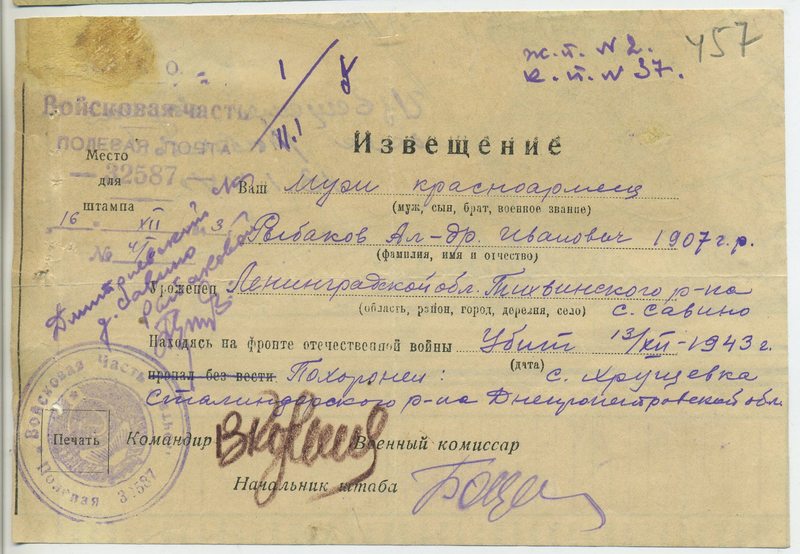 ж.п. N 2.
к.п. N 37.
457
Войсковая часть
ПОЛЕВАЯ ПОЧТА
— 32587 —
Извещение
Место
для
штампа
Ваш муж красноармеец
(муж, сын, брат, военное звание)
16 XII 3
№ 41
Рыбаков Ал-др. Иванович 1907 г.р.
(фамилия, имя и отчество)
Дмитровский
д. Савино
Рыбаковой
Уроженец Ленинградской обл. Тихвинского р-на
(область, район, город, деревня, село) с. Савино
Находясь на фронте отечественной войны Убит 13/XII-1943 г.
(дата)
пропал без вести Похоронен: с. Хрущевка
Сталиндорского р-на Днепропетровской обл.
Войсковая Часть
Полевая 32587
Печать
Командир
Военный комиссар
Начальник штаба